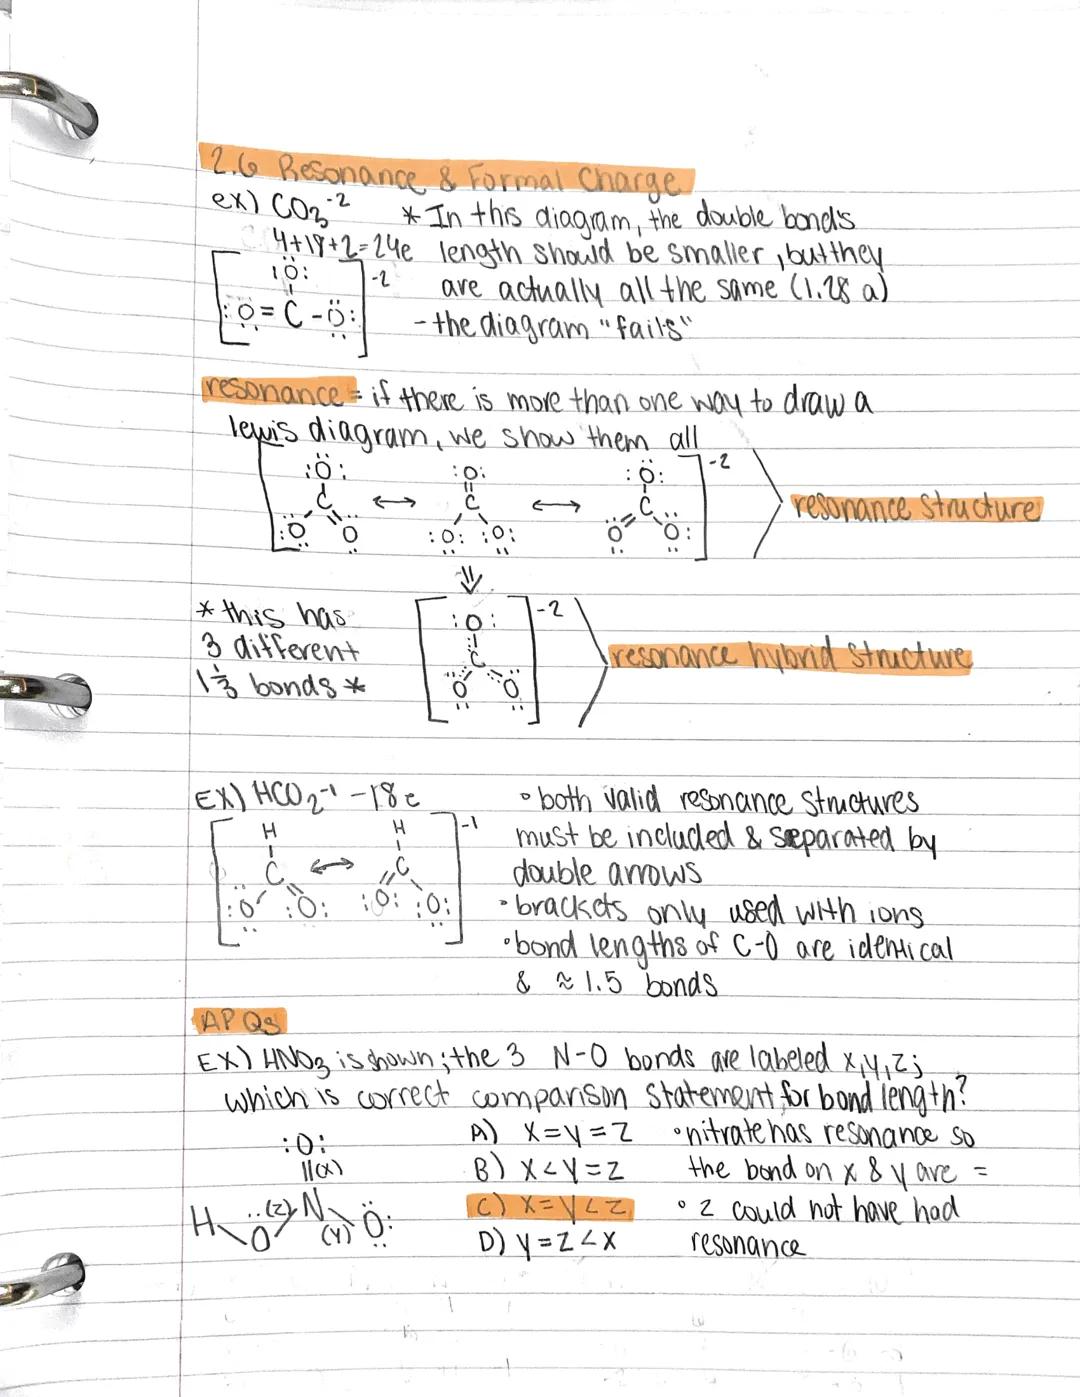 2.6 Resonance & Formal Charge
ex) CO3-2 * In this diagram, the double bonds
4+18+2=24e length should be smaller, but they
are actually all the same (1.28 a)
- the diagram "fails"
:O:
-2
:O=C-O:
resonance = if there is more than one way to draw a
lewis diagram, we show them all
:O: :O: :O: -2
C ↔ C ↔ C
:O O :O: :O: O O:
resonance structure
⇓
* this has
3 different
1 1/3 bonds *
:O: -2
C
O O
resonance hybrid structure
EX) HCO2-1 - 18e
H H -1
C ↔ C
:O :O: :O: :O:
• both valid resonance structures
must be included & separated by
double arrows
• brackets only used with ions
• bond lengths of C-O are identical
& ≈ 1.5 bonds
AP Qs
EX) HNO3 is shown; the 3 N-O bonds are labeled x,y,z;
which is correct comparison statement for bond length?
:O:
||(x)
H O (z) N (y) O:
A) X=Y=Z
B) X<Y=Z
C) X=Y<Z
D) Y=Z<X
• nitrate has resonance so
the bond on x & y are =
• z could not have had
resonance